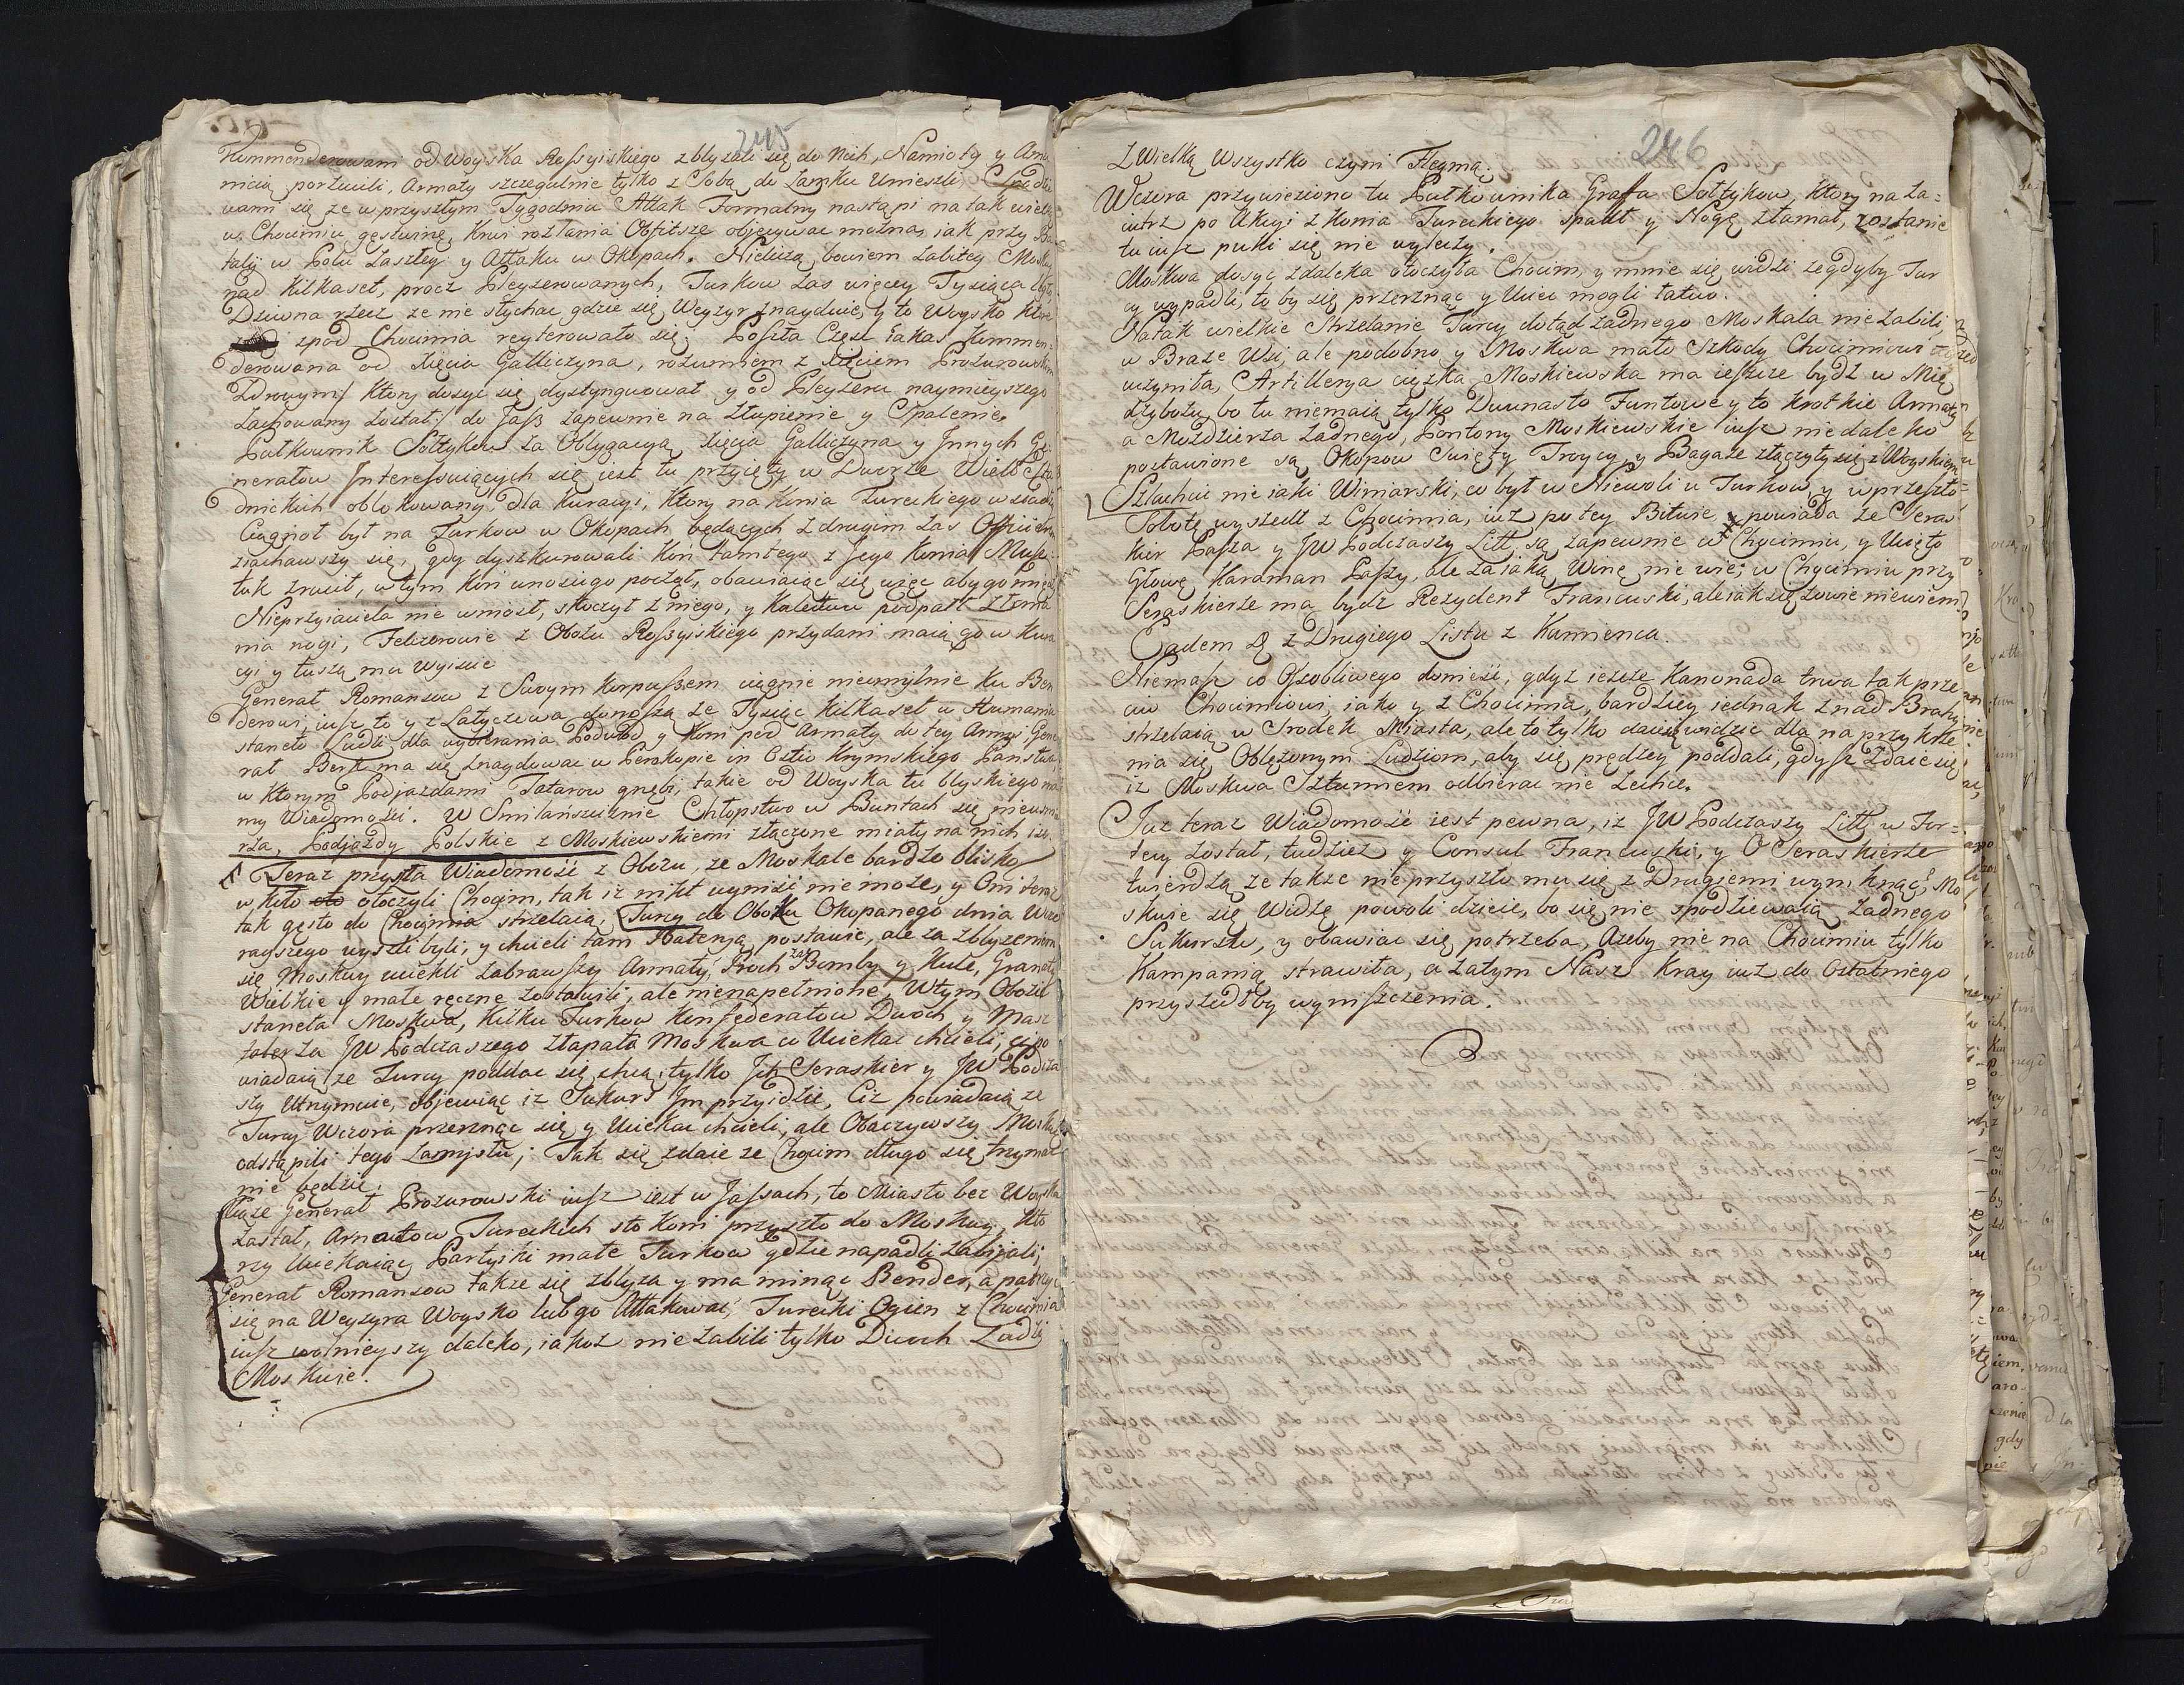 245
Kommenderowani od Woyska Rossyiskiego zblyżali się do Nich, Namioty y Amu
nicią porzucili, Armaty szczegulnie tylko z Sobą do Zamku Unieszli. Spodzie
wam się że w przyszłym Tygodniu Attak Formalny nastąpi na tak wielką
w Chocimiu gęstwinę, Krwi rozlania Obfitsze obiecywac można, iak przy Ba
talÿ w Polu zaszłey y Attaku w Okopach. Nieliczą bowiem zabitey Moskwy
nad Kilkaset, procz Pleyzerowanych, Turkow zas więcey Tysiąca
Dziwna rzecz ze nie słychac gdzie się Wezyr znayduie, y to Woysko ktore
spod Chocimia reyterowało się; Poszła Częsc iakas Kommen-
derowana od Xięcia Galliczyna, rozumiem z Xięciem Prozorowskim
Zdrowym/ ktory dosyc się dystyngwował y od Pleyzeru naymnieyszego
zachowany został/ do Jaß zapewne na złupienie y Spalenie.
Pułkownik Sołtykow za Obligacyą Xięcia Galliczyna y Innych Ge-
nerałow Interessuiących się iest tu przyięty w Dworze Wielo
dnickich oblokowany, dla Kuracyi, ktory na Konia Tureckiego wsiadł
Ciągnoł był na Turkow w Okopach będących z drugim zas Officierem
ziachawszy się, gdy dyszkurowali Koń tamtego z Jego Konia Musz:
tuk zrucił, w tym koń unosić go począł, obawiaiąc się więc aby go między
Nieprzyiaciela nie wniosł, skoczył z niego, y Kalectwu podpadł złama
nia nogi; Felczerowie z Obozu Rossyiskiego przydani maią go w Kura
cyi y tuszą mu wyiscie
Generał Romanzow z Swoym Korpussem ciągnie nieomylnie Ku Ben
derowi, iusz to y z Latyczewa donoszą że Tysiąc Kilkaset w Humania
staneło Ludzi dla wybierania Podwod y Koni pod Armaty do tey Armÿ Gene
rał Berk ma się znaydowac w Perekopie in Ostio Krymskiego Panstwa,
w ktorym Podjazdami Tatarow gnębi, takie od Woyska tu blyskiego ma
my Wiadomości. W Smilańszczyznie Chłopstwo w Buntach się nieusmie
rza, Podjazdy Polskie z Moskiewskiemi złączone miały na nich iść.
Teraz przyszła Wiadomość z Obozu, że Moskale bardzo blisko
w koło oto otoczyli Chocim, tak iż nikt wyniść nie może, y Oni teraz
tak gęsto do Chocimia strzelaią, Turcy do Oboku Okopanego dnia Wczo
rayszego wyszli byli, y chcieli tam Bateryą postawic, ale za zblyżeniem
się Moskwy uciekli zabrawszy Armaty, Proch zaś Bomby y Kule, Granaty
Wielkie y małe ręczne zostawili, ale nienapełnione, W tym Obozie
staneła Moskwa, Kilku Turkow Konfederatow Dwoch y Masz
talerza JW Podczaszego złapała Moskwa co Uciekac chcieli, ci po
wiadaią że Turcy poddac się chcą, tylko Jch Seraskier y JW Podcza
szy Utrzymuie, obiecuiąc iż Sukurs Jm przyidzie, Ciż powiadaią że
Turcy Wczora przerznąc się y Uciekac chcieli, ale Obaczywszy Moskwę
odstąpili tego zamysłu; Tak się zdaie że Chocim długo się trzymac
nie będzie.
Xiąże Generał Prozorowski iusz iest w Jassach, to Miasto bez Woyska
zastał, Arnautow Tureckich sto koni przyszło do Moskwy, kto
rzy Uciekaiąc Partyiki małe Turkow gdzie napadli zabijali;
Generał Romanzow takze się zblyża y ma minąc Bender, a patrzyc
się na Wezyra Woysko lub go Attakowac, Turecki Ogień z Chocimia
iusz wolnieyszy daleko, iakoż nie zabili tylko Dwoch Ludzi
Moskwie.
246
Z Wielką Wszystko czyni Flegmą.
Wczora przywieziono tu Pułkownika Graffa Sołtykow, ktory na Za=
iutrz po Akcyi z Konia Tureckiego spadł y Nogę złamał, zostanie
tu iusz puki się nie wyleczy.
Moskwa dosyc zdaleka otoczyła Chocim, y mnie się widzi że gdyby Tur
cy wypadli, to by się przerznąc y Uisc mogli łatwo.
Na tak wielkie Strzelanie Turcy dotąd żadnego Moskala nie zabili
w Braze Wsi, ale podobno y Moskwa mało Szkody Chocimiowi
uczyniła, Artillerya ciężka Moskiewska ma ieszcze bydz w Mię
dzybożu, bo tu niemaią tylko Dwunasto Funtowe y to krotkie Armaty
a Mozdzierza żadnego, Pontony Moskiewskie iusz niedaleko
postawione są Okopow Swięty Troycy, y Bagaże złączyły się z Woyskiem
Szlachcic nie iaki Winiarski, co był w Niewoli u Turkow, y w przeszło=
Sobotę wyszedł z Chocimia, iuż po tey Bitwie, powiada że Seras
kier Pasza y JW Podczaszy Litt są zapewne w Chocimiu, y Ucięto
Głowę Karaman Paszy, ale za iaką Winę nie wie; w Chocimiu przy
Seraskierze ma bydz Rezydent Francuski, ale iak się zowie niewiem.
Eadem D z Drugiego Listu z Kamienca.
Niemasz co Osobliwego donieść, gdyż ieszcze Kanonada trwa tak prze
ciw Chocimiowi iako y z Chocimia, bardziey iednak znad Brahy
strzelaią w Srodek Miasta, ale to tylko daie się widzic dla na przykrze
nia się Oblężonym Ludziom, aby się prędzey poddali, gdysz zdaie się
iż Moskwa Szturmem odbierac nie zechce.
Już teraz Wiadomość iest pewna, iż JW Podczaszy Litt: w For=
tecy został, tudzież y Consul Francuski, y O Seraskierze
twierdzą że także nie przyszło mu się z Drugiemi wymknąc, Mo
skwie się Widzę powoli dzieie, bo się nie spodziewaią żadnego
Sukursu, y obawiac się potrzeba, Ażeby nie na Chocimiu tylko
Kampanią strawiła, a zatym Nasz Kray iuż do Ostatniego
przyszedłby wyniszczenia.